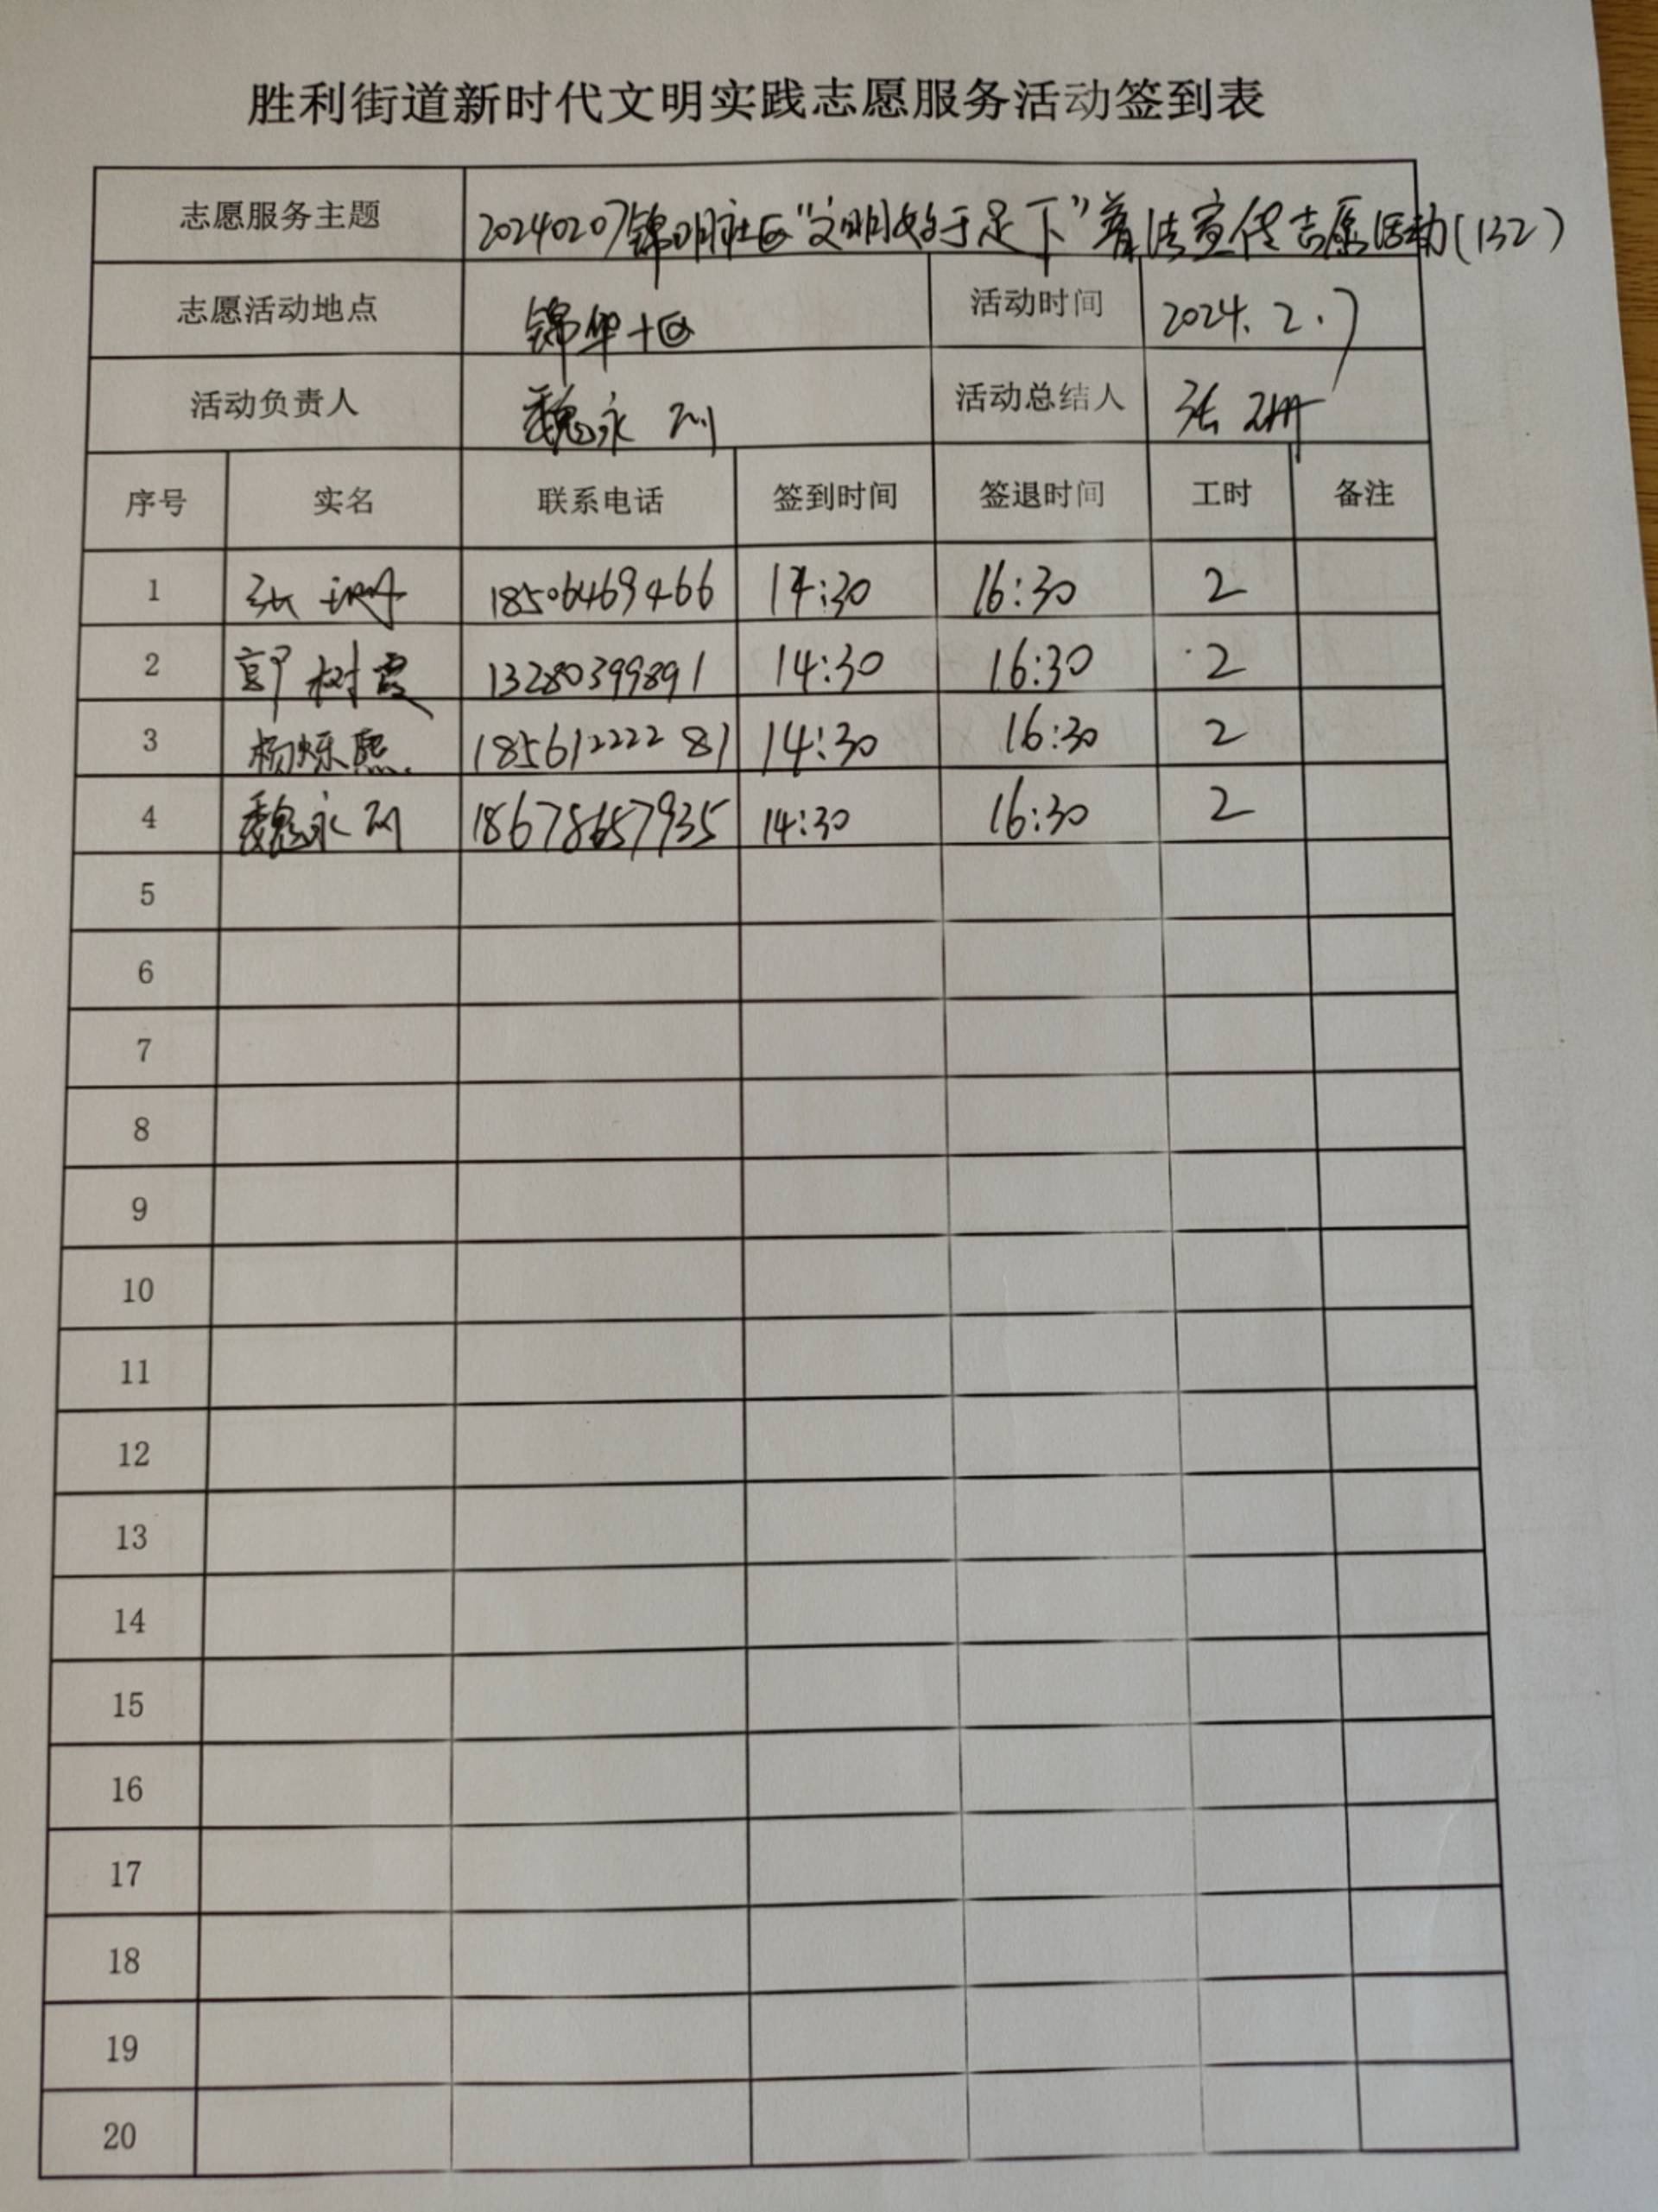 胜利街道新时代文明实践志愿服务活动签到表
志愿服务主题 20240207锦明社区“文明始于足下”普法宣传志愿活动(132)
志愿活动地点 锦华十区 活动时间 2024.2.7
活动负责人 魏永刚 活动总结人 张珊
序号 实名 联系电话 签到时间 签退时间 工时 备注
1 张珊 18506469466 14:30 16:30 2
2 郭树霞 13280399891 14:30 16:30 2
3 杨烁熙 18561222281 14:30 16:30 2
4 魏永刚 18678657935 14:30 16:30 2
5
6
7
8
9
10
11
12
13
14
15
16
17
18
19
20